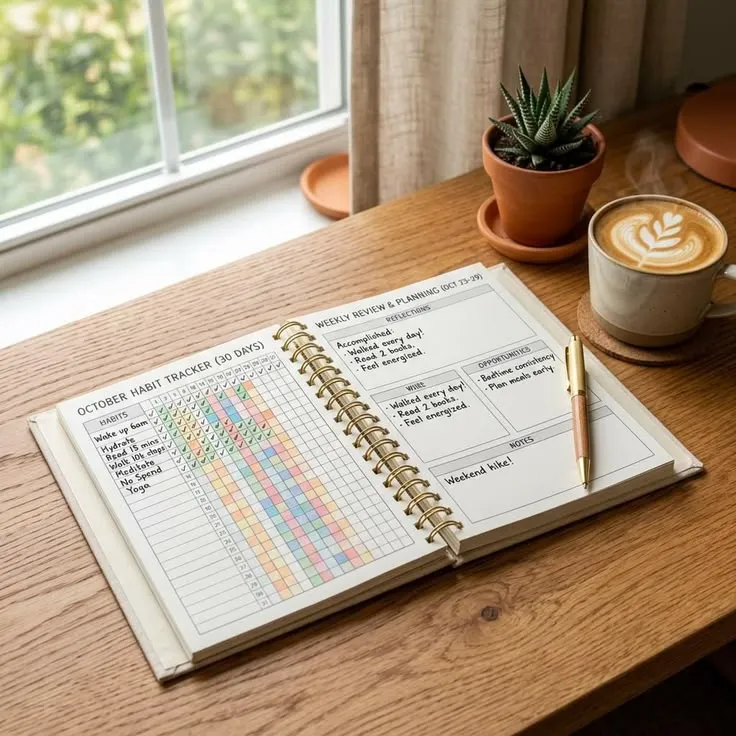 OCTOBER HABIT TRACKER (30 DAYS)
HABITS
Wake up 6am
Hydrate
Read 15 mins
Walk 10k steps
Meditate
No Spend
Yoga
WEEKLY REVIEW & PLANNING (OCT 23-29)
REFLECTIONS
Accomplished:
- Walked every day!
- Read 2 books.
- Feel energized.
- Walked every day!
- Read 2 books.
- Feel energized.
OPPORTUNITIES
- Bedtime consistency
- Plan meals early.
NOTES
Weekend hike!